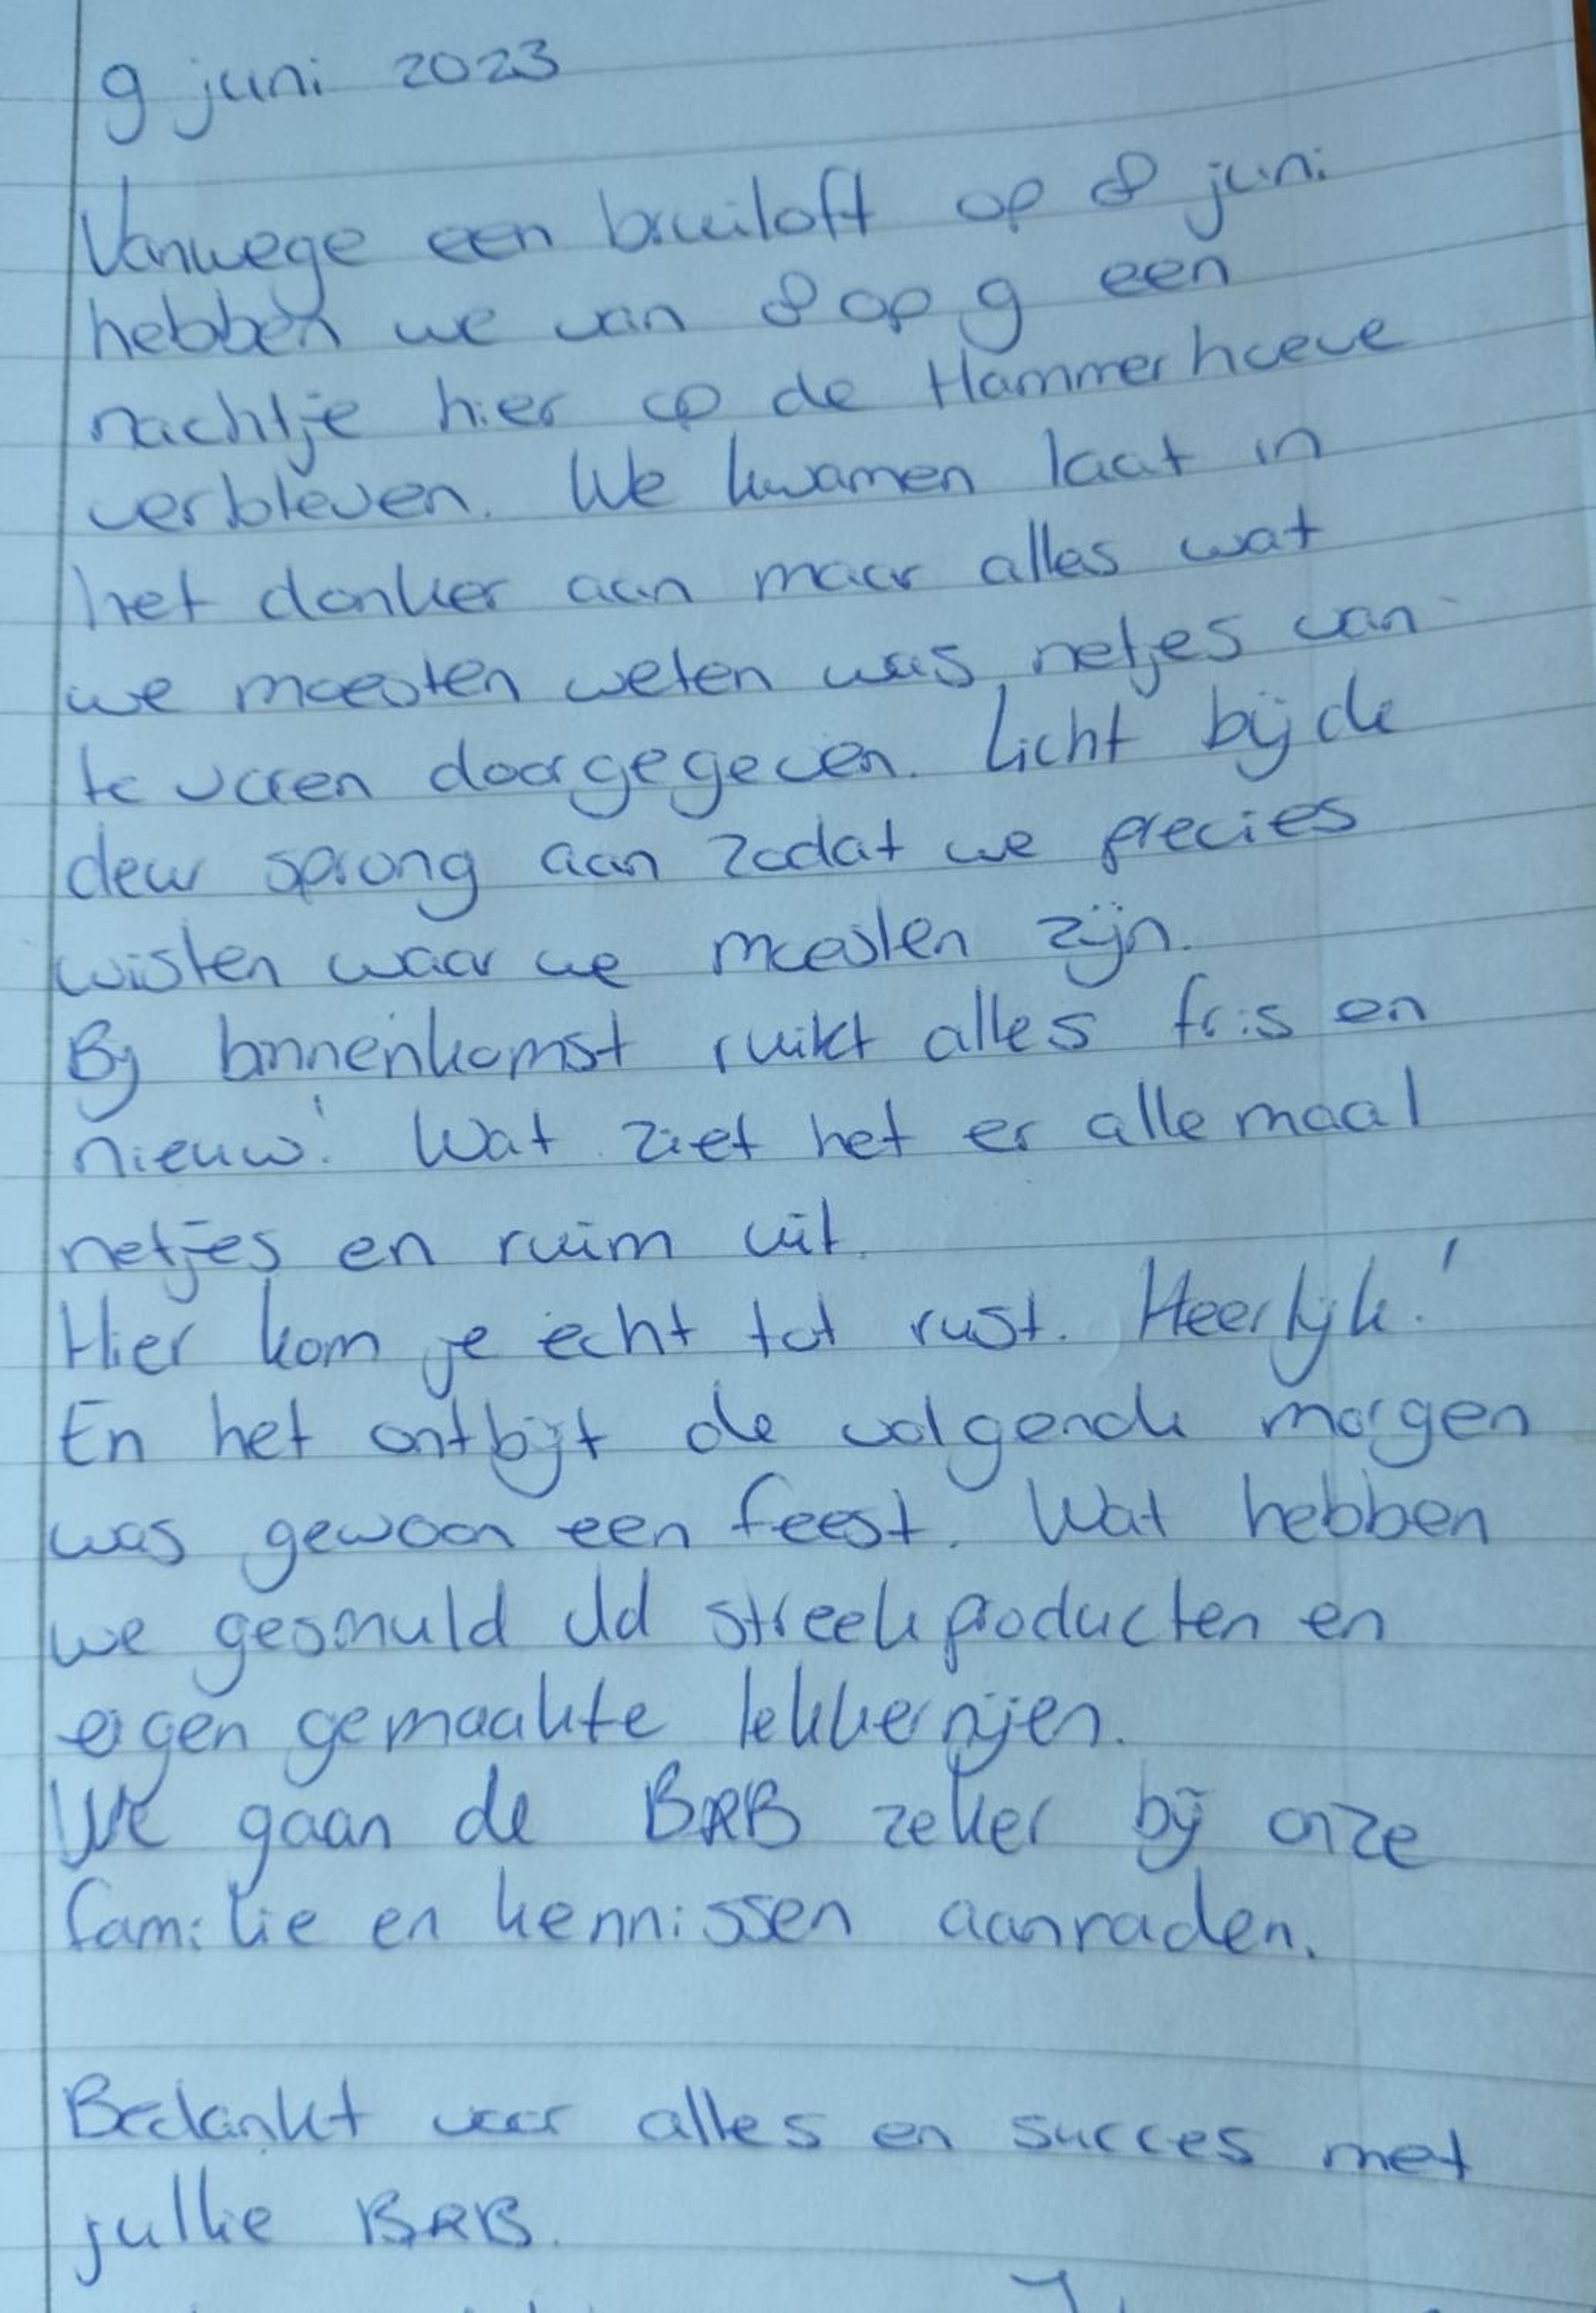 9 juni 2023
Vanwege een bruiloft op 8 juni
hebben we van 8 op 9 een
nachtje hier op de Hammerhoeve
verbleven. We kwamen laat in
het donker aan maar alles wat
we moesten weten was netjes van
te voren doorgegeven. Licht bij de
deur sprong aan zodat we precies
wisten waar we moesten zijn.
Bij binnenkomst ruikt alles fris en
nieuw! Wat ziet het er allemaal
netjes en ruim uit.
Hier kom je echt tot rust. Heerlijk!
En het ontbijt de volgende morgen
was gewoon een feest. Wat hebben
we gesmuld vd streekproducten en
eigen gemaakte lekkernijen.
We gaan de B&B zeker bij onze
familie en kennissen aanraden.
Bedankt voor alles en succes met
jullie B&B.